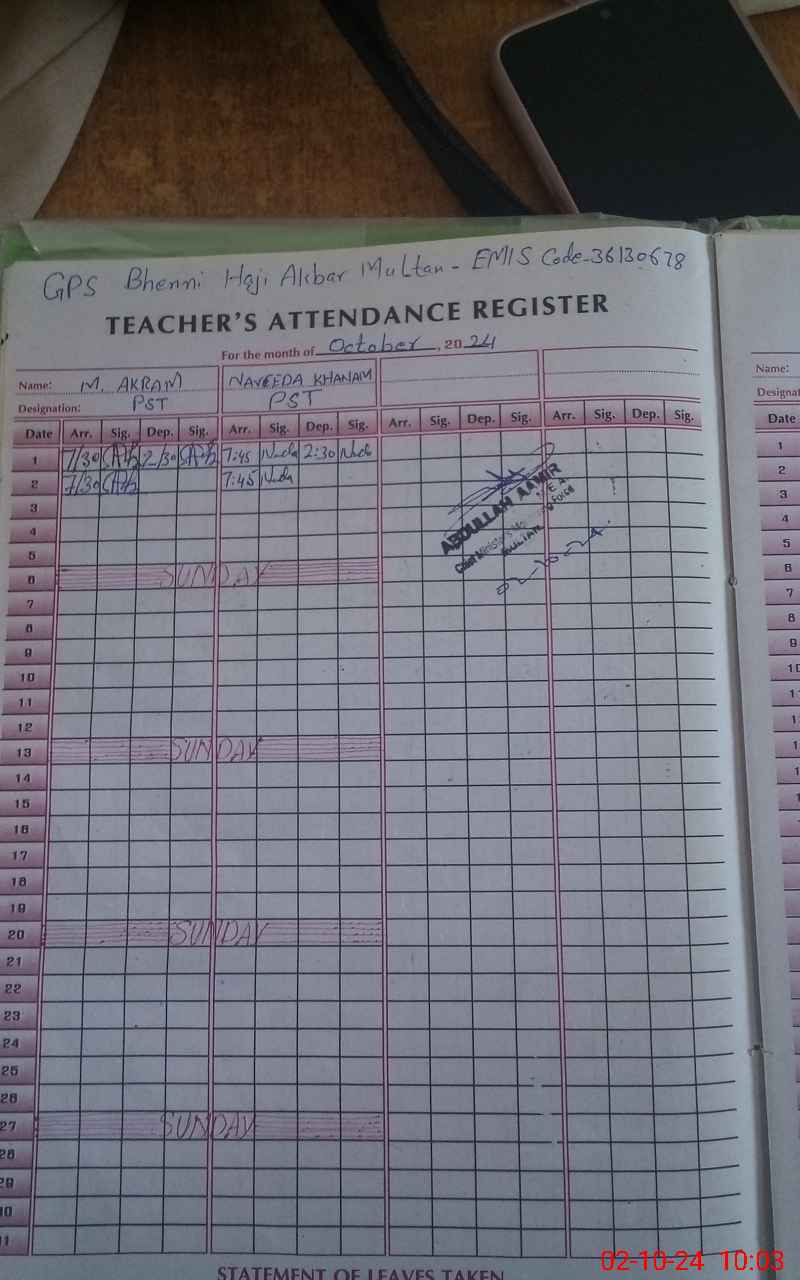 GPS Bhenni Haji Akbar Multan - EMIS Code-36130678
TEACHER'S ATTENDANCE REGISTER
For the month of October, 2024
Name: M. AKRAM NAVEEDA KHANAM
Designation: PST PST
Date Arr. Sig. Dep. Sig. Arr. Sig. Dep. Sig. Arr. Sig. Dep. Sig. Arr. Sig. Dep. Sig.
1 7/30 2/30 7:45 2:30
2 7/30 7:45
3
4
5
6 SUNDAY
7
8
9
10
11
12
13 SUNDAY
14
15
16
17
18
19
20 SUNDAY
21
22
23
24
25
26
27 SUNDAY
28
29
10
11
ABDULLAH AAMIR
MULTAN
STATEMENT OF LEAVES TAKEN
Name:
Designat
Date
1
2
3
4
5
6
7
8
9
10
02-10-24 10:03